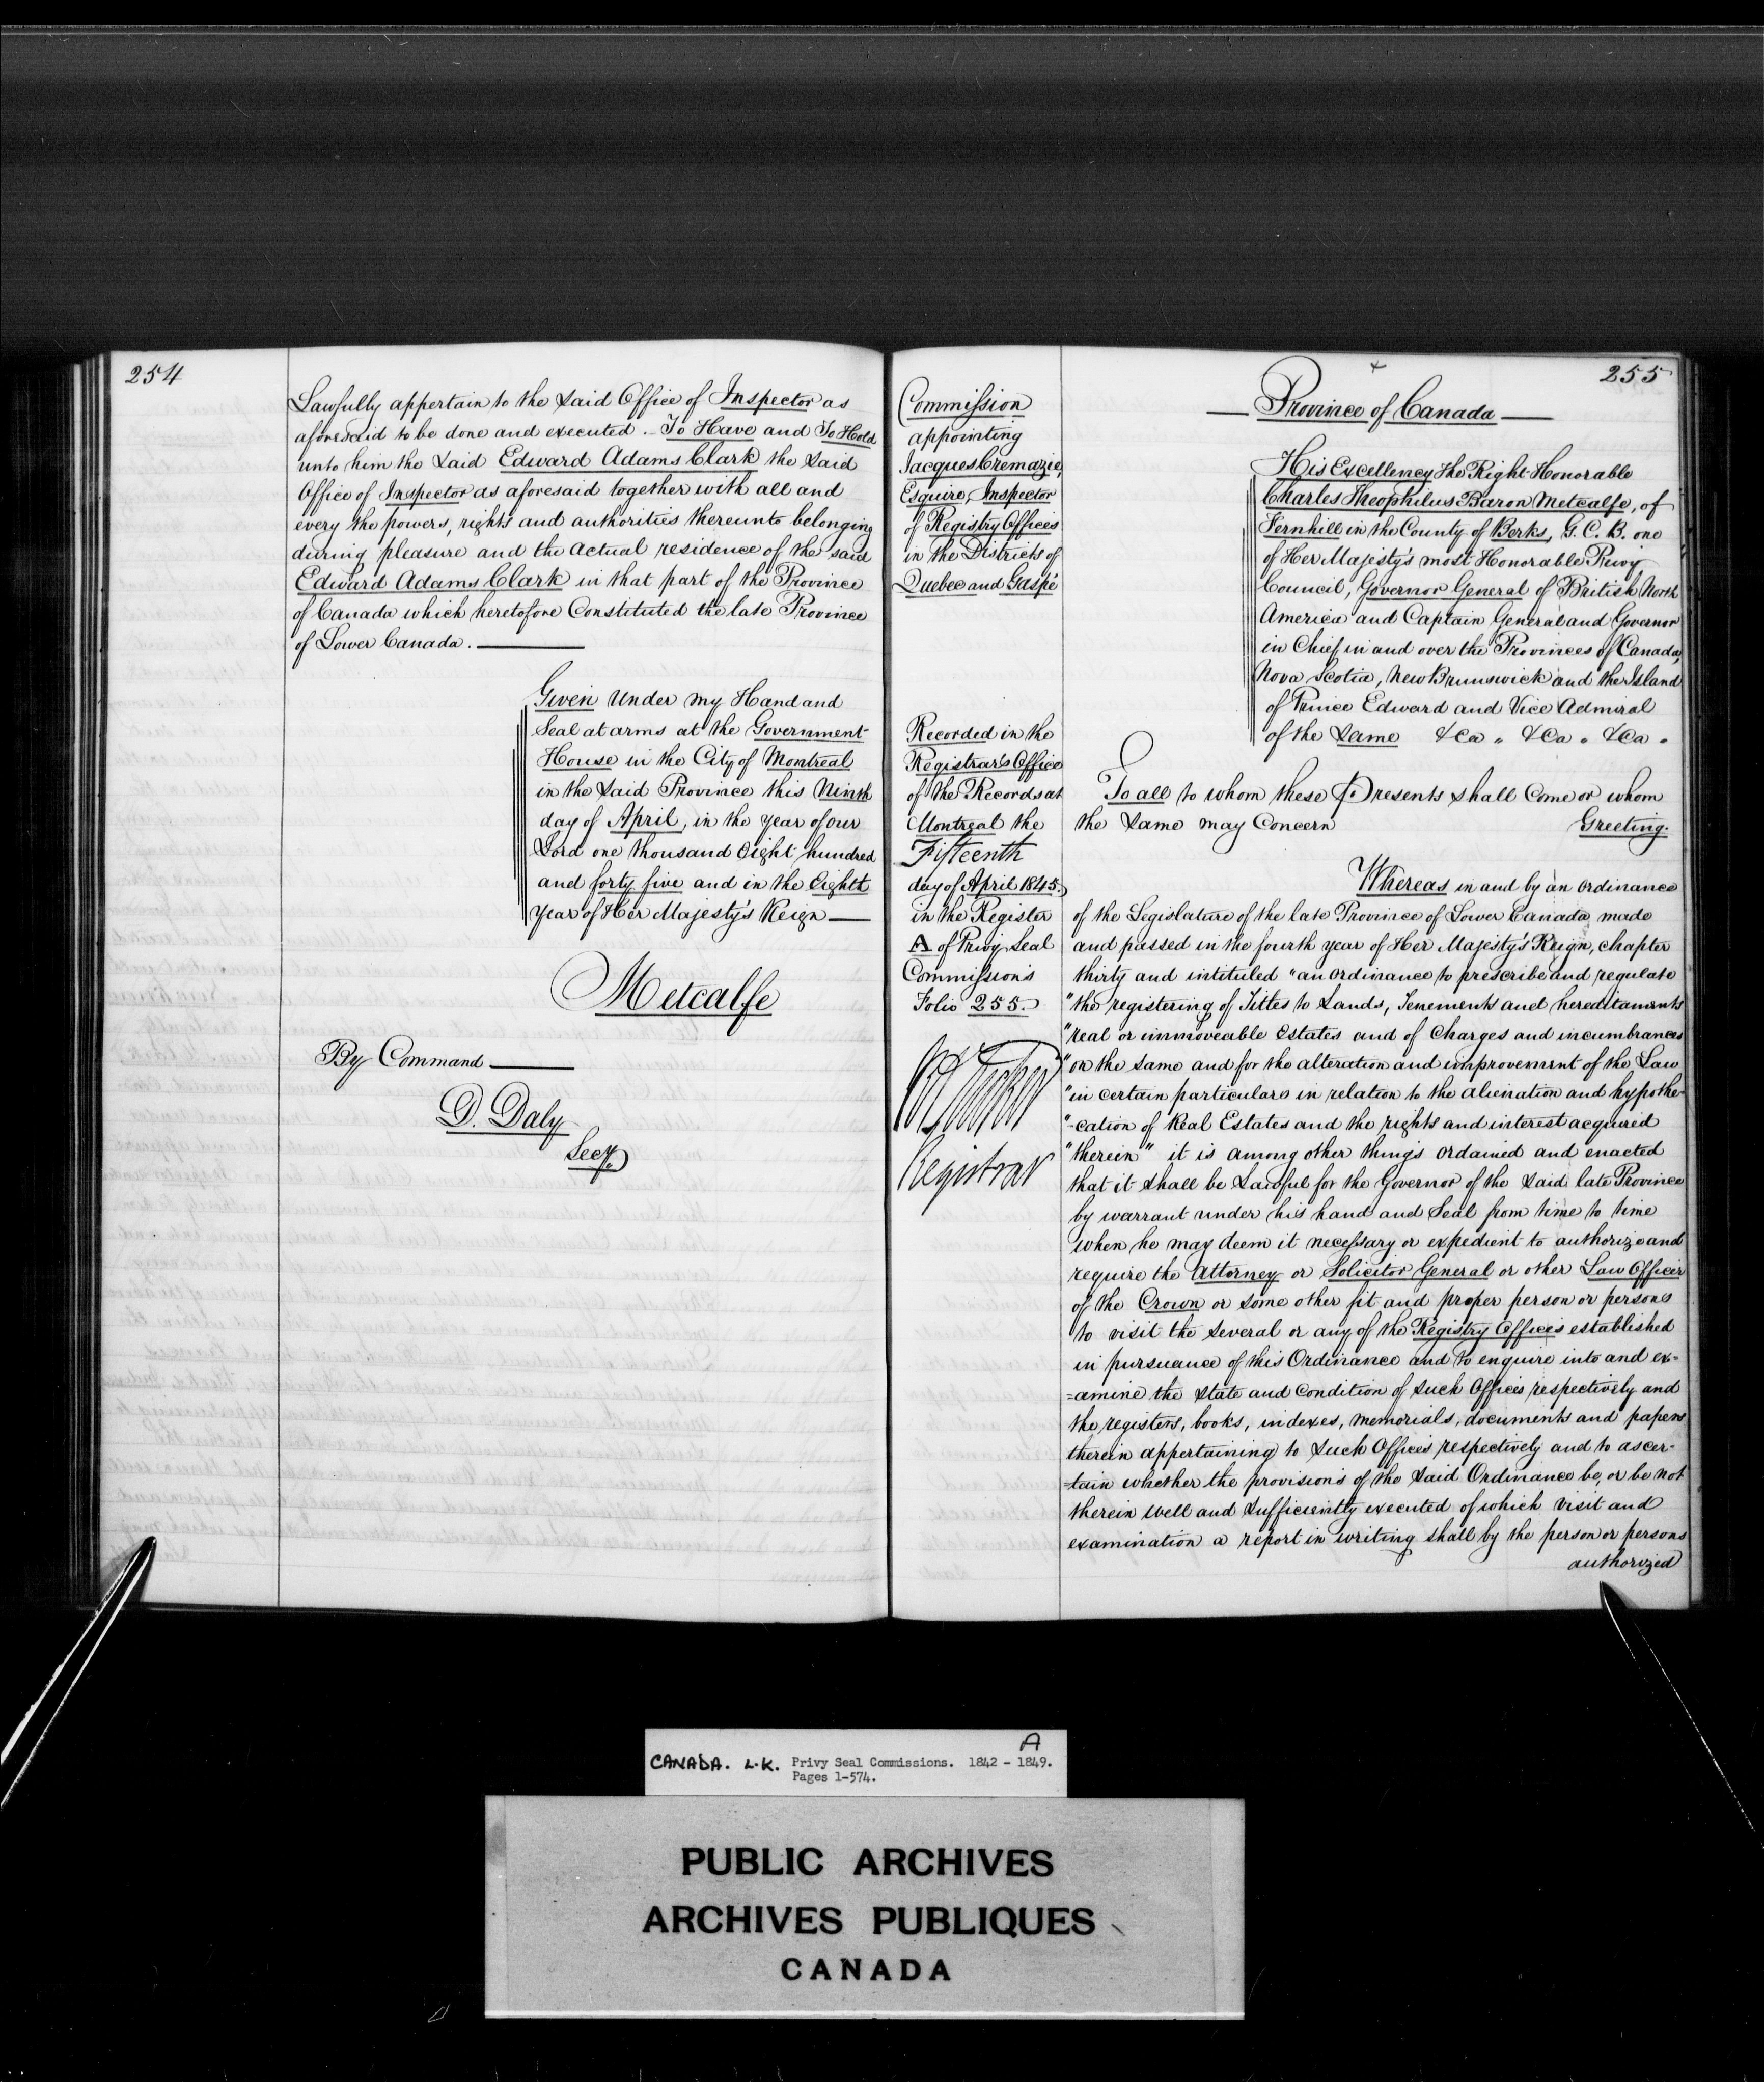 254
Lawfully appertain to the Said Office of Inspector as
aforesaid to be done and executed. To Have and To Hold
unto him the Said Edward Adams Clark the Said
Office of Inspector as aforesaid together with all and
every the powers, rights and authorities thereunto belonging
during pleasure and the actual residence of the said
Edward Adams Clark in that part of the Province
of Canada which heretofore Constituted the late Province
of Lower Canada.
Given Under my Hand and
Seal at arms at the Government
House in the City of Montreal
in the Said Province this Ninth
day of April, in the year of our
Lord one thousand Eight hundred
and forty five and in the Eighth
year of Her Majesty's Reign
Metcalfe
By Command
D. Daly
Secy.
Commission
appointing
Jacques Cremazie,
Esquire, Inspector
of Registry Offices
in the Districts of
Quebec and Gaspé
Recorded in the
Registrar's Office
of the Records at
Montreal the
Fifteenth
day of April 1845.
in the Register
A of Privy Seal
Commissions
Folio 255.
Registrar
255
Province of Canada
His Excellency the Right Honorable
Charles Theophilus Baron Metcalfe, of
Fernhill in the County of Berks, G. C. B. one
of Her Majesty's most Honorable Privy
Council, Governor General of British North
America and Captain General and Governor
in Chief in and over the Provinces of Canada,
Nova Scotia, New Brunswick and the Island
of Prince Edward and Vice Admiral
of the Same &Ca. &Ca. &Ca.
To all to whom these Presents shall Come or whom
the Same may Concern Greeting.
Whereas in and by an Ordinance
of the Legislature of the late Province of Lower Canada, made
and passed in the fourth year of Her Majesty's Reign, chapter
thirty and intituled "an Ordinance to prescribe and regulate
"the registering of Titles to Lands, Tenements and hereditaments
"real or immoveable Estates and of Charges and incumbrances
"on the same and for the alteration and improvement of the Law
"in certain particulars in relation to the alienation and hypothe-
"-cation of Real Estates and the rights and interest acquired
"therein" it is among other things ordained and enacted
that it shall be Lawful for the Governor of the Said late Province
by warrant under his hand and Seal from time to time
when he may deem it necessary or expedient to authorize and
require the Attorney or Solicitor General or other Law Officer
of the Crown or some other fit and proper person or persons
to visit the several or any of the Registry Offices established
in pursuance of this Ordinance and to enquire into and ex=
=amine the State and Condition of such Offices respectively and
the registers, books, indexes, memorials, documents and papers
therein appertaining to Such Offices respectively and to ascer-
=tain whether the provisions of the Said Ordinance be, or be not
therein well and Sufficiently executed of which visit and
examination a report in writing shall by the person or persons
authorized
CANADA. L.K. Privy Seal Commissions. 1842 - 1849. A
Pages 1-574.
PUBLIC ARCHIVES
ARCHIVES PUBLIQUES
CANADA